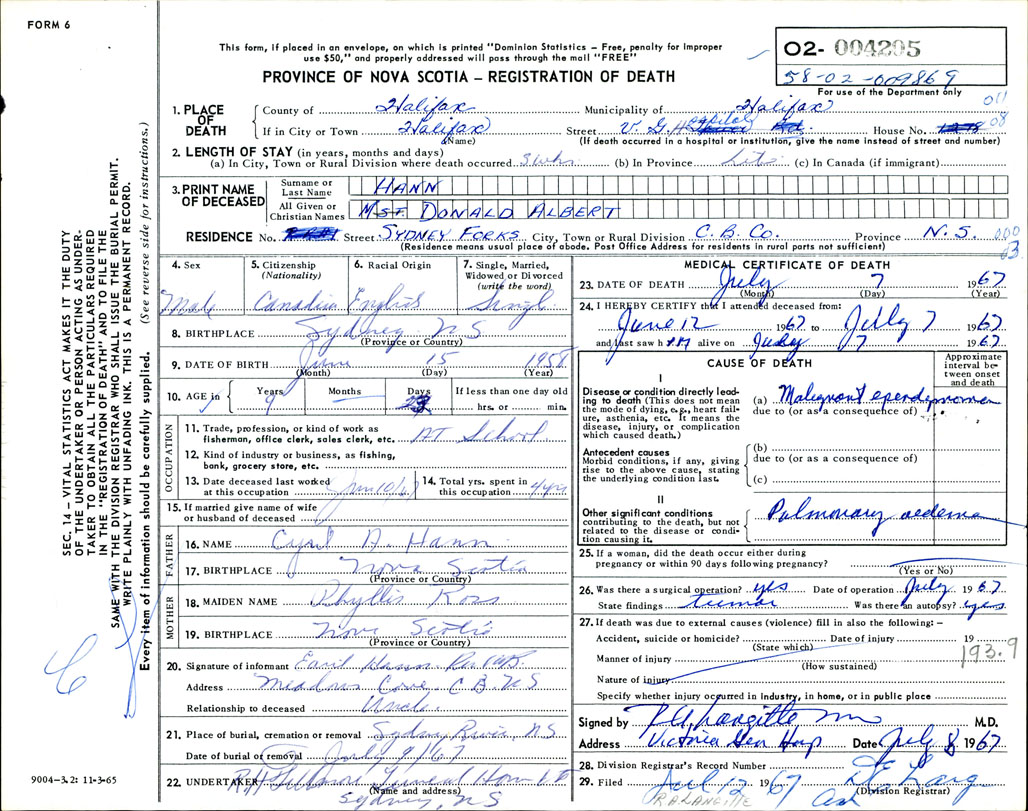 FORM 6
This form, if placed in an envelope, on which is printed "Dominion Statistics – Free, penalty for improper
use $50," and properly addressed will pass through the mail "FREE"
PROVINCE OF NOVA SCOTIA – REGISTRATION OF DEATH
02- 004295
58-02-009869
For use of the Department only
1. PLACE OF DEATH
County of Halifax Municipality of Halifax 011
If in City or Town Halifax Street V. G. Hospital House No. 08
(Name) (If death occurred in a hospital or institution, give the name instead of street and number)
2. LENGTH OF STAY (in years, months and days)
(a) In City, Town or Rural Division where death occurred 3 wks (b) In Province Life (c) In Canada (if immigrant)
3. PRINT NAME OF DECEASED
Surname or Last Name HANN
All Given or Christian Names MST. DONALD ALBERT
RESIDENCE No. Street SYDNEY FORKS City, Town or Rural Division C. B. Co. Province N. S. 000
(Residence means usual place of abode. Post Office Address for residents in rural parts not sufficient) 03
4. Sex Male
5. Citizenship (Nationality) Canadian
6. Racial Origin English
7. Single, Married, Widowed or Divorced (write the word) Single
8. BIRTHPLACE Sydney NS
(Province or Country)
9. DATE OF BIRTH June 15 1958
(Month) (Day) (Year)
10. AGE in Years 9 Months Days If less than one day old
hrs. or min.
OCCUPATION
11. Trade, profession, or kind of work as
fisherman, office clerk, sales clerk, etc. AT School
12. Kind of industry or business, as fishing,
bank, grocery store, etc.
13. Date deceased last worked
at this occupation Jun 10/67
14. Total yrs. spent in
this occupation 4 yrs
15. If married give name of wife
or husband of deceased
FATHER
16. NAME Cyril A. Hann
17. BIRTHPLACE Nova Scotia
(Province or Country)
MOTHER
18. MAIDEN NAME Phyllis Ross
19. BIRTHPLACE Nova Scotia
(Province or Country)
20. Signature of informant Earil Hann
Address Meadows Cove C B NS
Relationship to deceased Uncle.
21. Place of burial, cremation or removal Sydney River, NS
Date of burial or removal July 9/67
22. UNDERTAKER Fillmore Funeral Home
(Name and address)
Sydney, NS
MEDICAL CERTIFICATE OF DEATH
23. DATE OF DEATH July 7 1967
(Month) (Day) (Year)
24. I HEREBY CERTIFY that I attended deceased from:
June 12 1967 to July 7 1967
and last saw him alive on July 7 1967
CAUSE OF DEATH
Approximate interval between onset and death
I
Disease or condition directly leading to death (This does not mean the mode of dying, e.g., heart failure, asthenia, etc. It means the disease, injury, or complication which caused death.)
(a) Malignant ependymoma
due to (or as a consequence of)
Antecedent causes
Morbid conditions, if any, giving rise to the above cause, stating the underlying condition last.
(b)
due to (or as a consequence of)
(c)
II
Other significant conditions
contributing to the death, but not related to the disease or condition causing it.
Pulmonary oedema
25. If a woman, did the death occur either during
pregnancy or within 90 days following pregnancy?
(Yes or No)
26. Was there a surgical operation? yes Date of operation July 1967
State findings tumor Was there an autopsy? yes
27. If death was due to external causes (violence) fill in also the following: –
Accident, suicide or homicide? Date of injury 19
(State which) 193.9
Manner of injury
(How sustained)
Nature of injury
Specify whether injury occurred in industry, in home, or in public place
Signed by R A Langille MD M.D.
Address Victoria Gen Hosp Date July 8 1967
28. Division Registrar's Record Number
29. Filed Jul 12 1967
R.A. LANGILLE (Division Registrar)
SEC. 14 – VITAL STATISTICS ACT MAKES IT THE DUTY
OF THE UNDERTAKER OR PERSON ACTING AS UNDER-
TAKER TO OBTAIN ALL THE PARTICULARS REQUIRED
IN THE "REGISTRATION OF DEATH" AND TO FILE THE
SAME WITH THE DIVISION REGISTRAR WHO SHALL ISSUE THE BURIAL PERMIT.
WRITE PLAINLY WITH UNFADING INK. THIS IS A PERMANENT RECORD.
Every item of information should be carefully supplied. (See reverse side for instructions.)
9004–3.2: 11-3-65